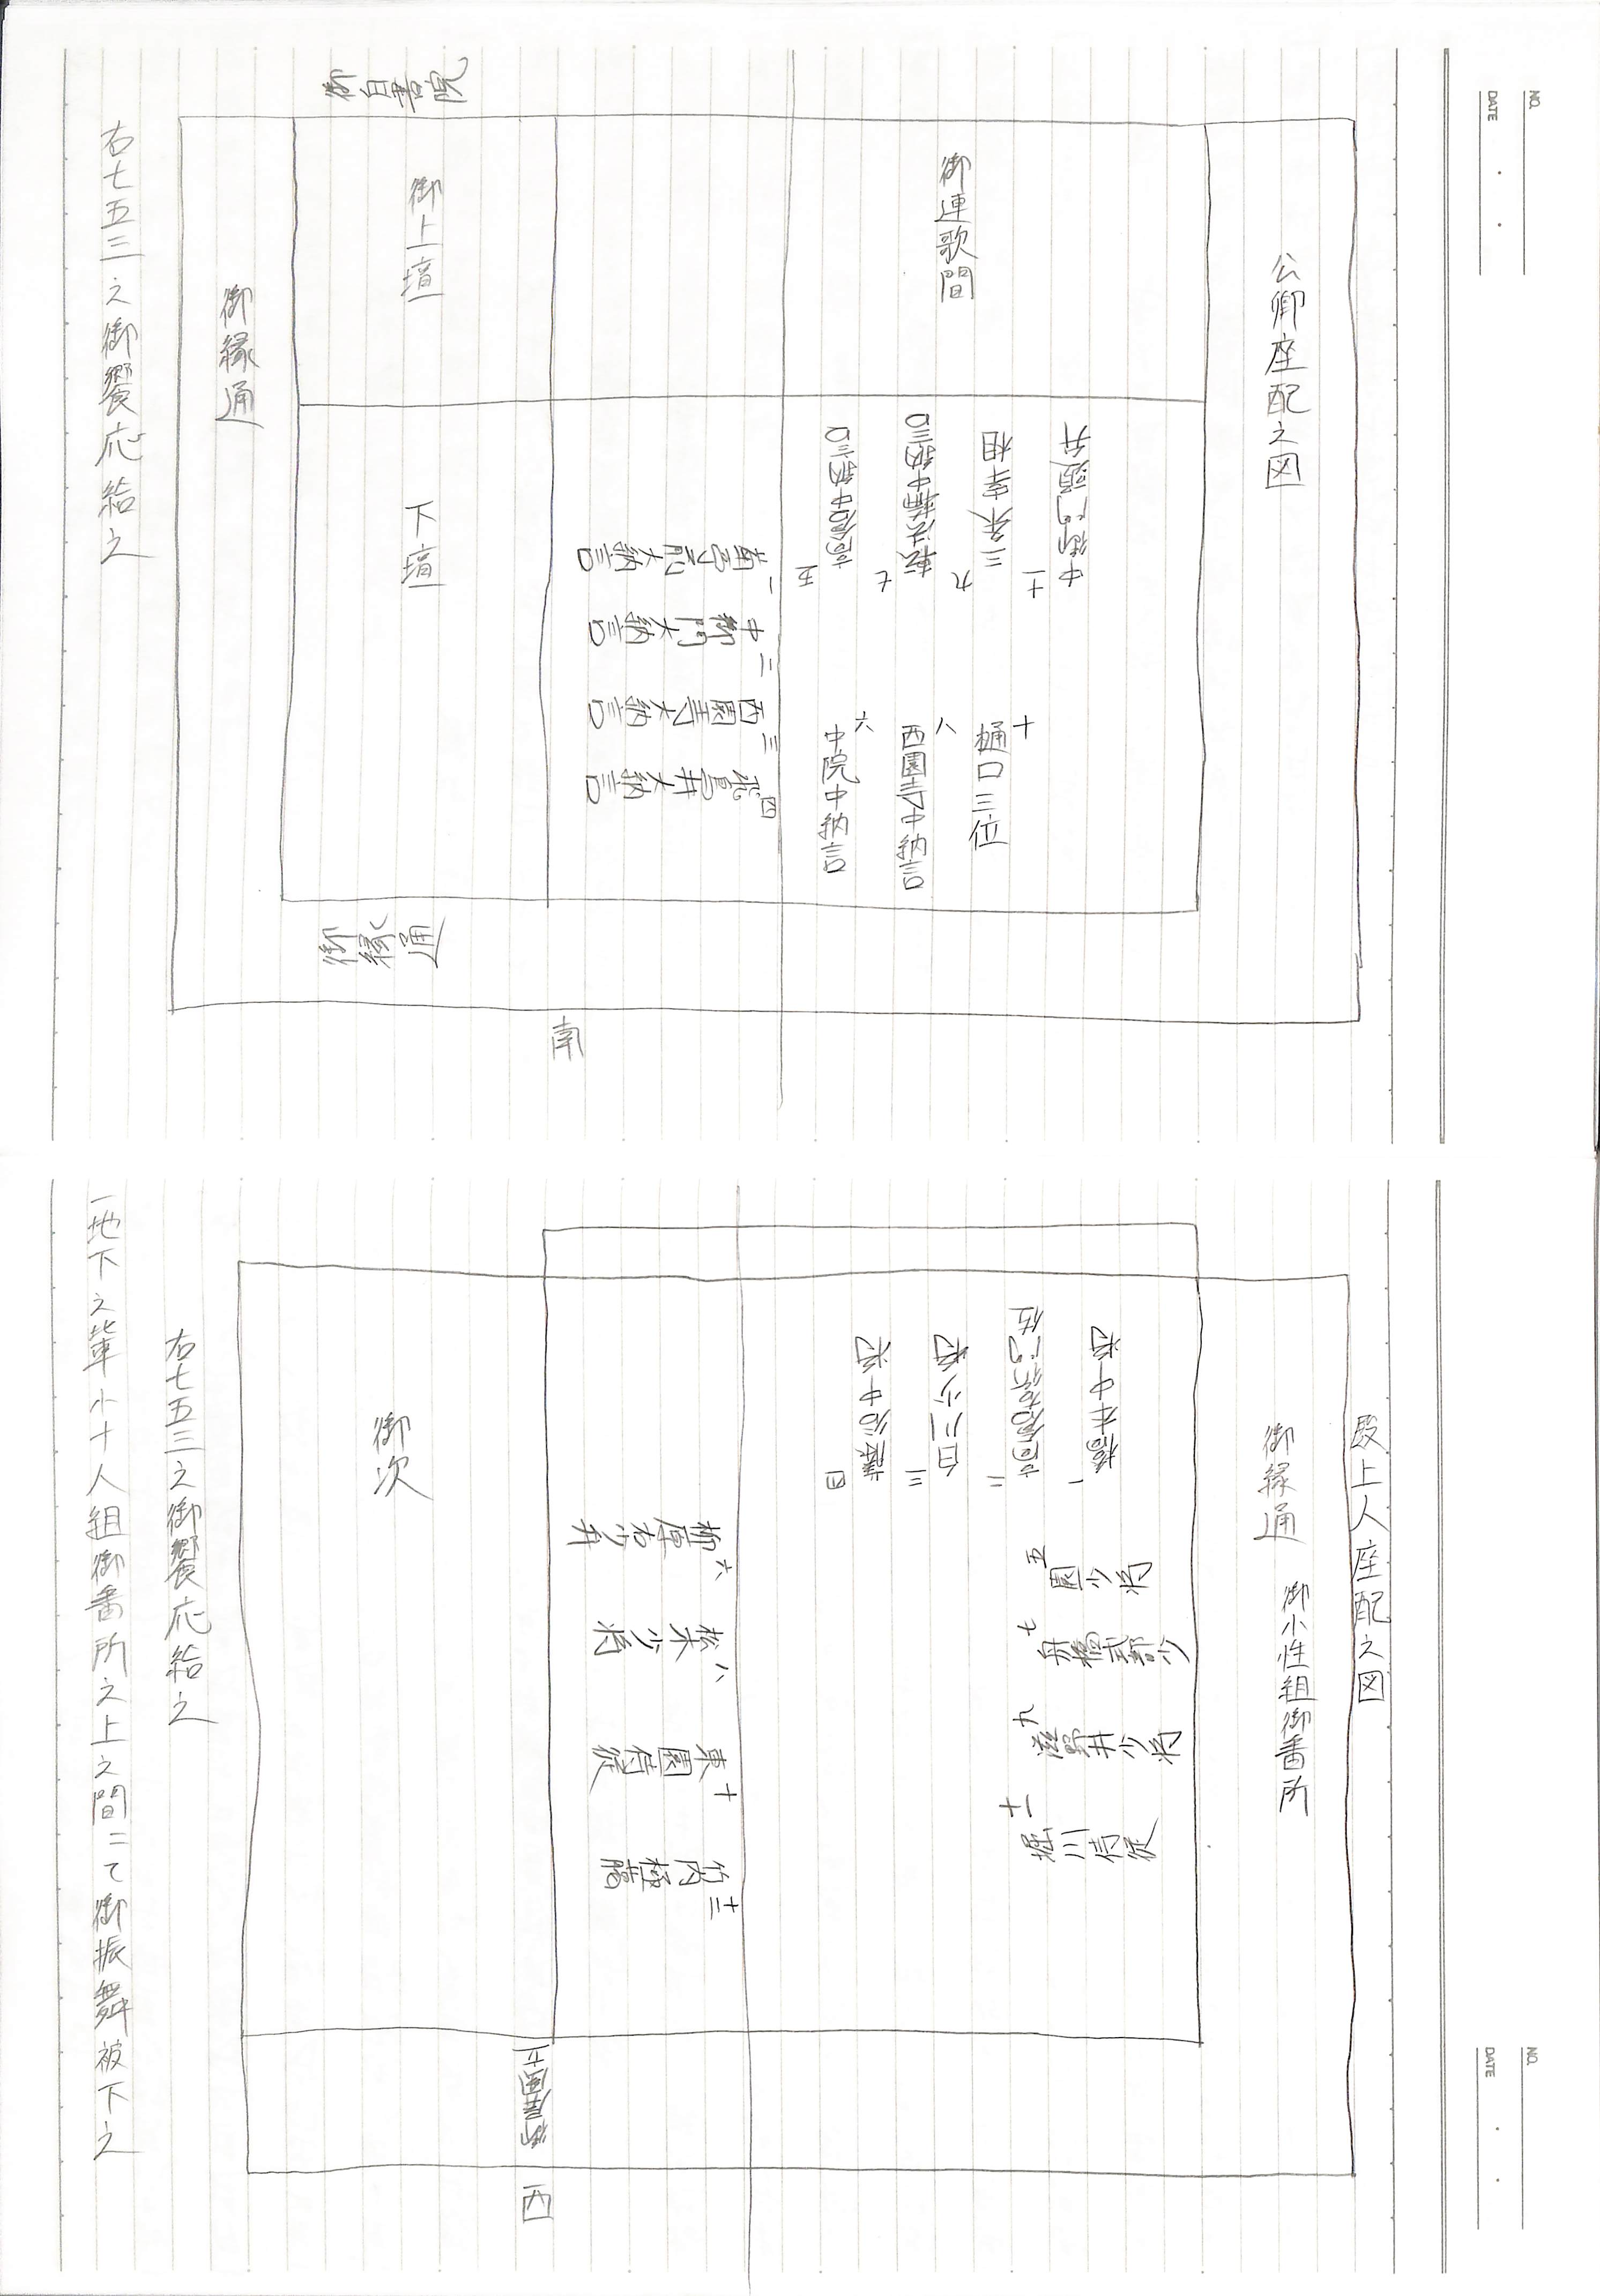 NO.
DATE
公卿座配之図
御連歌間
十一
中御門宰相
九
三条宰相
七
中納言
五
中納言
十
樋口三位
八
西園寺中納言
六
中院中納言
一
大納言
二
中御門大納言
三
西園寺大納言
四
飛鳥井大納言
御上壇
下壇
御縁通
御縁通
御白書院
南
右七五三之御饗応給之
NO.
DATE
殿上人座配之図
御縁通
御小性組御番所
一
二
三
四
五
園少将
七
舟橋式部少
九
滋野井少将
十一
堀川侍従
六
柳原右少弁
八
松木少将
十
東園侍従
十二
竹内極臈
御次
西
右七五三之御饗応給之
一地下之輩小十人組御番所之上之間ニて御振舞被下之